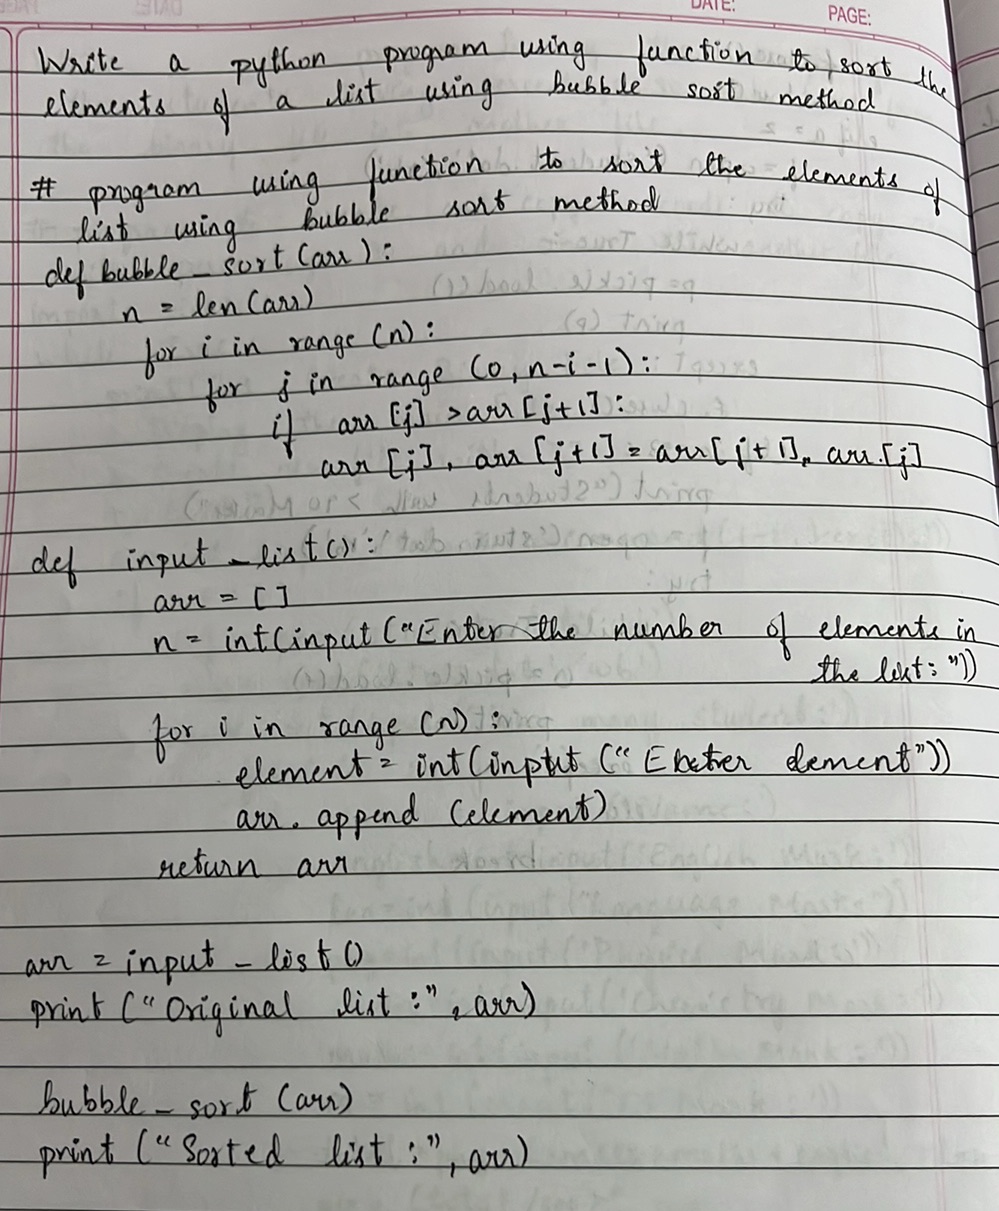 DATE:
PAGE:
Write a python program using function to sort the
elements of a list using bubble sort method
# program using function to sort the elements of
list using bubble sort method
def bubble_sort(arr):
n = len(arr)
for i in range (n):
for j in range (0, n-i-1):
if arr [j] > arr [j+1]:
arr [j], arr [j+1] = arr [j+1], arr [j]
def input_list():
arr = []
n = int(input("Enter the number of elements in
the list: "))
for i in range (n):
element = int(input ("Enter element"))
arr. append (element)
return arr
arr = input_list()
print ("Original list :", arr)
bubble_sort (arr)
print ("Sorted list :", arr)